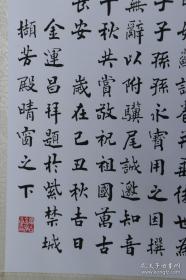 子子孫孫永寶用之因撰
無辭以附驥尾誠邀知音
千秋共賞敬祝祖國萬古
長安 歲在己丑秋吉日
金運昌拜題於紫禁城
擷芳殿晴窗之下